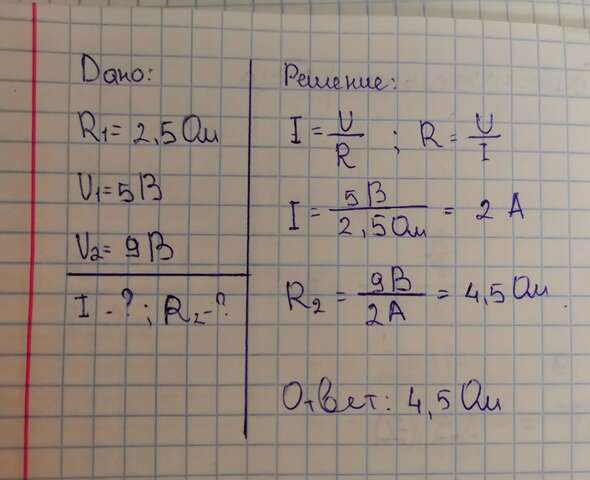 Дано:
R₁ = 2,5 Ом
U₁ = 5 В
U₂ = 9 В
I - ? ; R₂ - ?
Решение:
I = U/R ; R = U/I
I = 5 В / 2,5 Ом = 2 А
R₂ = 9 В / 2 А = 4,5 Ом.
Ответ: 4,5 Ом